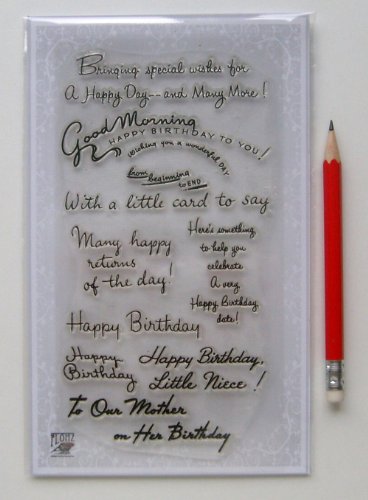 Bringing special wishes for
A Happy Day--and Many More!
Good Morning
HAPPY BIRTHDAY TO YOU!
Wishing you a wonderful DAY
from beginning
to END
With a little card to say
Many happy
returns
of the day!
Here's something
to help you
celebrate
A very
Happy Birthday
date!
Happy Birthday
Happy
Birthday
Happy Birthday,
Little Niece!
To Our Mother
on Her Birthday